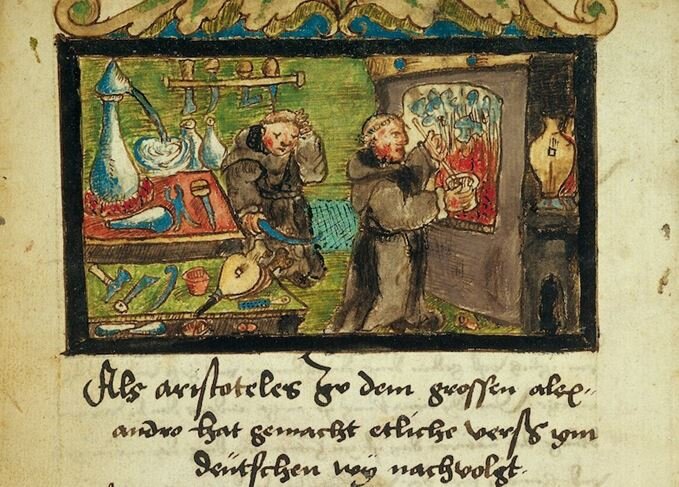 Als aristoteles zv dem grossen alex=
andro hat gemacht etliche verß ym
deütschen wy nachvolgt.